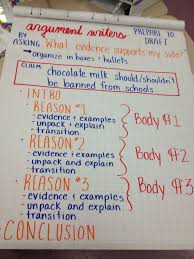 argument writers PREPARE TO
BY DRAFT
ASKING What evidence supports my side?
→ organize in boxes + bullets
CLAIM chocolate milk should/shouldn't
be banned from schools
INTRO
- REASON #1
- evidence + examples
- unpack and explain
- transition
Body ¶#1
- REASON #2
- evidence + examples
- unpack and explain
- transition
Body ¶#2
- REASON #3
- evidence + examples
- unpack and explain
- transition
Body ¶#3
CONCLUSION